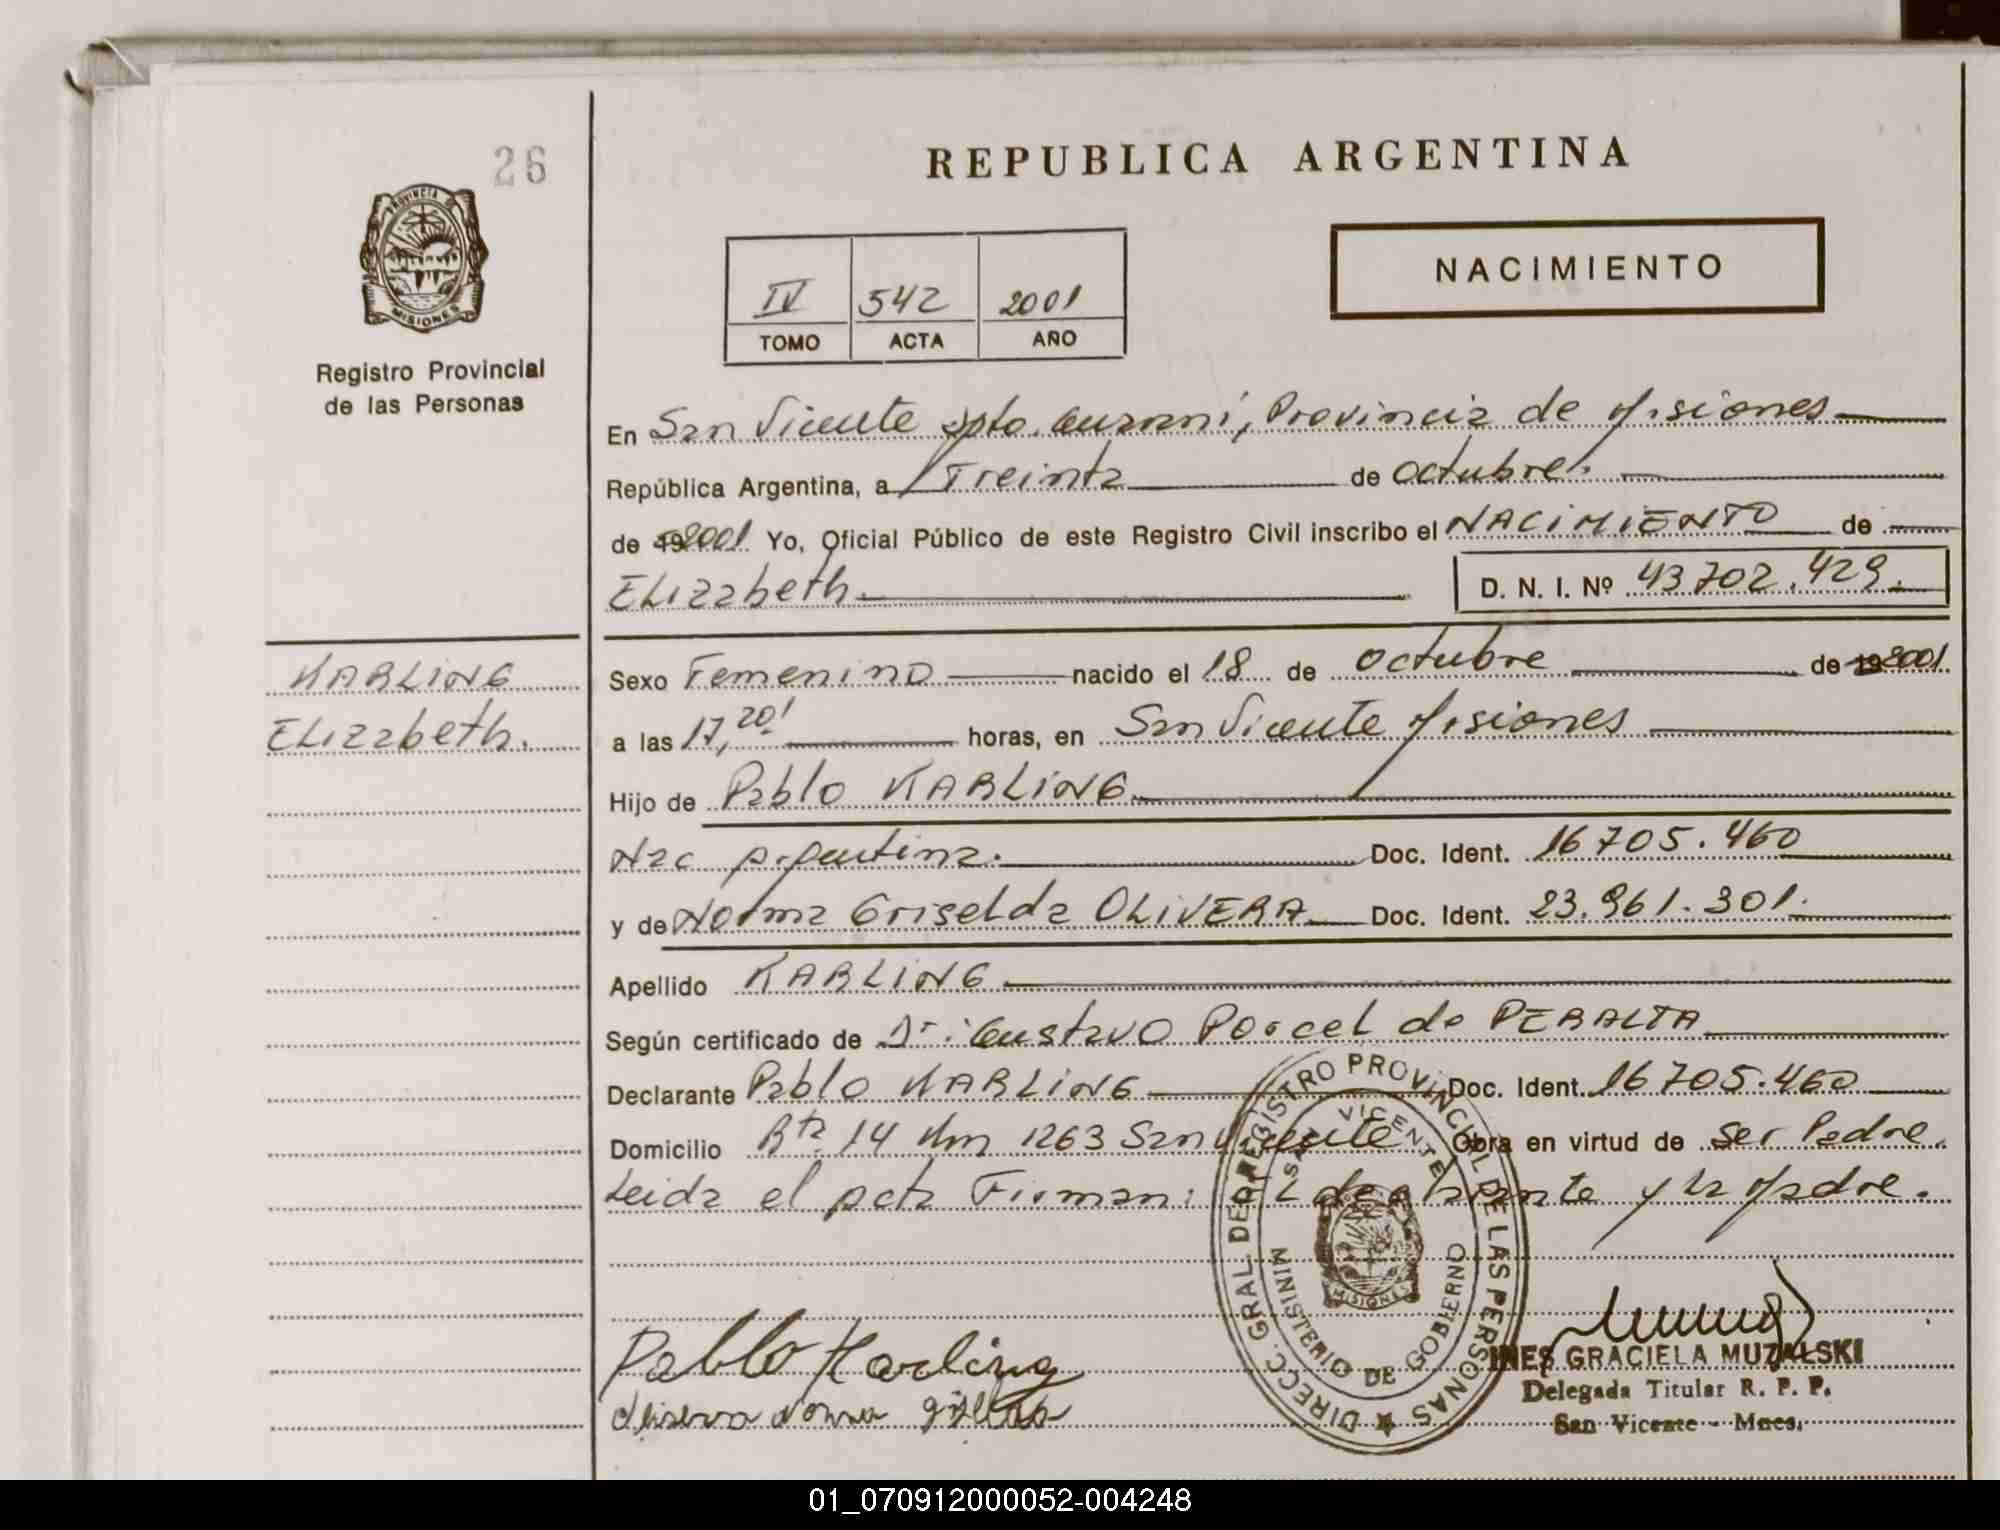 26
REPUBLICA ARGENTINA
PROVINCIA DE
MISIONES
IV 542 2001
TOMO ACTA AÑO
NACIMIENTO
Registro Provincial
de las Personas
En San Vicente Dpto. Guaraní, Provincia de Misiones
República Argentina, a Treinta de octubre.
de 192001 Yo, Oficial Público de este Registro Civil inscribo el NACIMIENTO de
Elizabeth. D. N. I. Nº 43702.429.
KARLING
Elizabeth.
Sexo Femenino nacido el 18 de octubre de 192001
a las 17,20' horas, en San Vicente Misiones
Hijo de Pablo KARLING
Nac Argentina. Doc. Ident. 16705.460
y de Norma Griselda OLIVERA Doc. Ident. 23.961.301.
Apellido KARLING
Según certificado de Dr: Gustavo Porcel de PERALTA
Declarante Pablo KARLING Doc. Ident. 16705.460
Domicilio Rta 14 Km 1263 San Vicente Obra en virtud de ser Padre.
Leida el acta Firman: declarante y la Madre.
DIRECC. GRAL. DE REGISTRO PROVINCIAL DE LAS PERSONAS
SAN VICENTE
MINISTERIO DE GOBIERNO
MISIONES
Pablo Karling
INES GRACIELA MUZALSKI
Delegada Titular R. P. P.
San Vicente - Mnes.
01_070912000052-004248